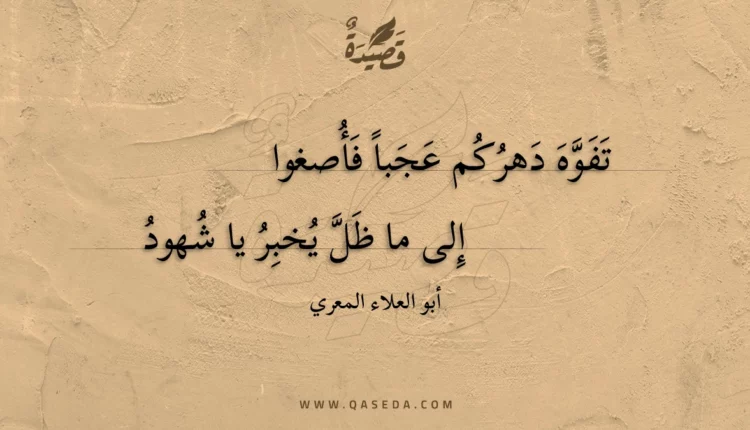 قَصِيدَةٌ
تَفَوَّهَ دَهرُكُم عَجَباً فَأُصغوا
إِلى ما ظَلَّ يُخبِرُ يا شُهودُ
أبو العلاء المعري
WWW.QASEDA.COM